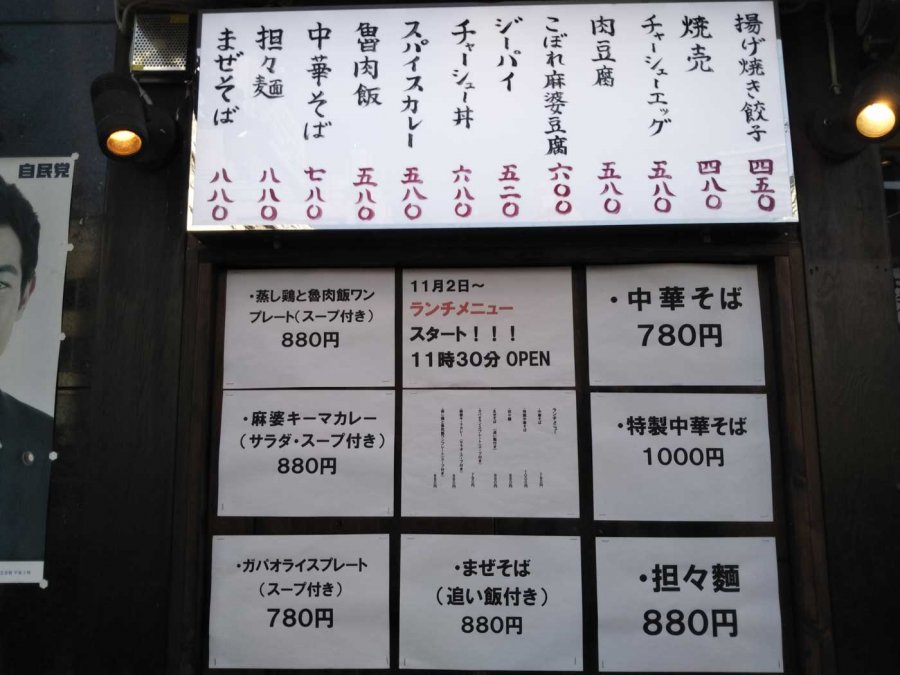 揚げ焼き餃子 四五〇
焼売 四八〇
チャーシューエッグ 五八〇
肉豆腐 五八〇
こぼれ麻婆豆腐 六〇〇
ジーパイ 五二〇
チャーシュー丼 六八〇
スパイスカレー 五八〇
魯肉飯 五八〇
中華そば 七八〇
担々麺 八八〇
まぜそば 八八〇
自民党
・蒸し鶏と魯肉飯ワン
プレート(スープ付き)
880円
11月2日~
ランチメニュー
スタート!!!
11時30分 OPEN
・中華そば
780円
・麻婆キーマカレー
(サラダ・スープ付き)
880円
ランチメニュー
・特製中華そば
1000円
・ガパオライスプレート
(スープ付き)
780円
・まぜそば
(追い飯付き)
880円
・担々麺
880円